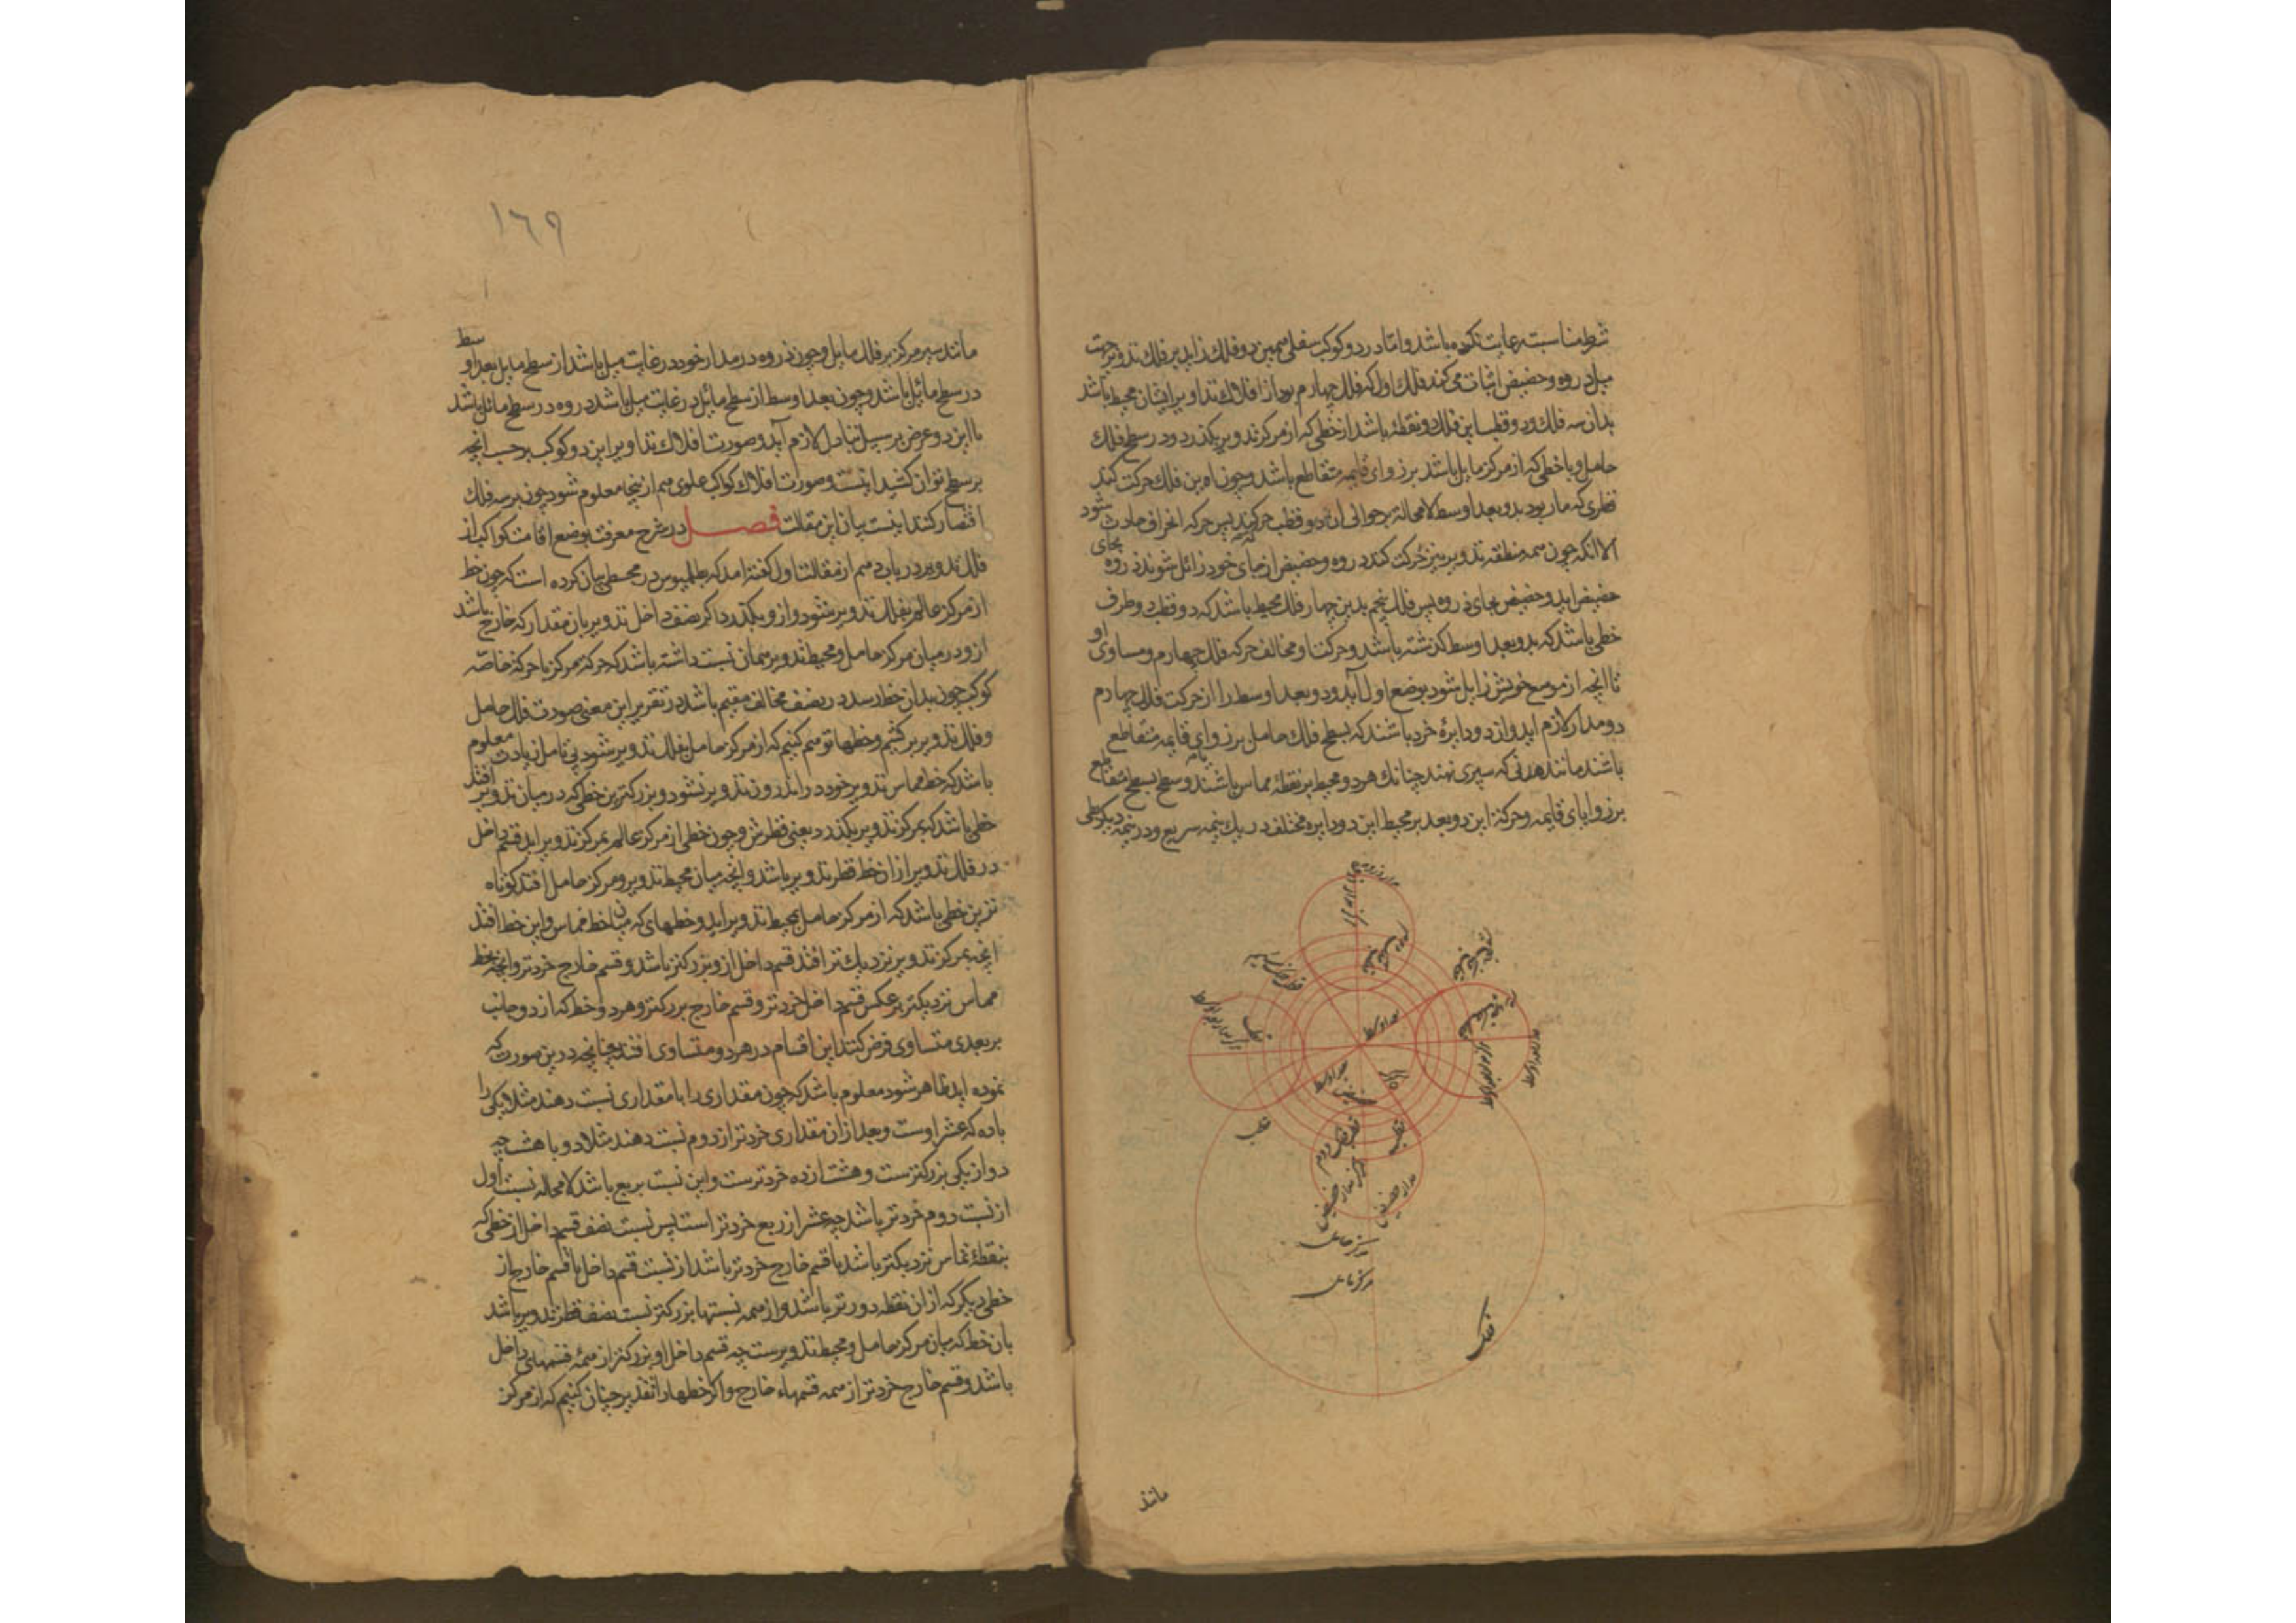 شرط مناسبت رعایت نکرده باشد واما در دو کوکب سفلی همین دو فلک زاید بر فلک تدویر جهت
میل ذروه وحضیض اثبات می کند فلک اول که فلک چهارم بود از افلاک تداویر ایشان محیط باشد
بدان سه فلک ودو قطب این فلک دو نقطهٔ باشد از خطی که از مرکز تدویر بگذرد ودر سطح فلک
حامل وبا خطی که از مرکز مایل باشد بر زوای قایمه متقاطع باشد وچون این فلک حرکت کند
قطری که مار بود بدو بعد اوسط لا محالة بر حوالی آن دو قطب حرکت کند پس حرکه انحراف حادث شود
الا انکه چون همه منطقه تدویر نیز حرکت کند ذروه وحضیض از جای خود زائل شوند ذروه بجای
حضیض اید وحضیض بجای ذروه پس فلک پنجم بدین چهار فلک محیط باشد که دو قطب او دو طرف
خطی باشد که بدو بعد اوسط گذشته باشد وحرکت او مخالف حرکه فلک چهارم ومساوی او
تا انچه از موضع خویش زایل شود بوضع اول آید ودو بعد اوسط را از حرکت فلک چهارم
دو مدار لازم اید واز دو دایرهٔ خرد باشند که بسطح فلک حامل بر زوای قایمه متقاطع
باشند مانند هدفی که سپری نهند چنانک هر دو محیط بر نقطهٔ مماس باشند وسطح بسطح متقاطع
بر زوایای قایمه وحرکة این دو بعد بر محیط این دو دایره مختلف در یک نیمه سریع ودر نیمه دیگر بطی
بعد اوسط
بعد اوسط
قطب
قطب
قطب فلک دوم
مدار حضیض
مرکز حامل
مرکز مایل
فلک
مانند
١٦٩
مانند سیر مرکز بر فلک مایل وچون ذروه در مدار خود در غایت میل باشد از سطح مایل بعد اوسط
در سطح مائل باشد وچون بعد اوسط از سطح مائل در غایت میل باشد ذروه در سطح مائل باشد
تا این دو عرض بر سبیل تبادل لازم آید وصورت افلاک تداویر این دو کوکب بر حسب انچه
بر سطح توان کشید اینست وصورت افلاک کواکب علوی هم ازینجا معلوم شود چون بر سه فلک
اقتصار کنند اینست بیان این مقالت فصل در شرح معرفت موضع اقامت کواکب از
فلک تدویر در باب دهم از مقالت اول گفته امد که بطلمیوس در مجسطی بیان کرده است که چون خط
از مرکز عالم بفلک تدویر شود وازو بگذرد اگر نصف داخل تدویر بان مقدار که خارج باشد
ازو در میان مرکز حامل ومحیط تدویر همان نسبت داشته باشد که حرکة مرکز با حرکة خاصّه
کوکب چون بدان خط رسد در نصف مخالف مقیم باشد در تقریر این معنی صورت فلک حامل
وفلک تدویر برکشیم وخطها توهم کنیم که از مرکز حامل بفلک تدویر شود بی تامل زیادت معلوم
باشد که خط مماس تدویر خود در اندرون تدویر نشود وبزرگترین خطی که در میان تدویر افتد
خطی باشد که بمرکز تدویر بگذرد یعنی قطرش وچون خطی از مرکز عالم بمرکز تدویر اید قسم داخل
در فلک تدویر از ان خط قطر تدویر باشد وانچه میان محیط تدویر ومرکز حامل افتد کوتاه
ترین خطی باشد که از مرکز حامل بمحیط تدویر اید وخطهای که میان خط مماس واین خط افتد
انچه بمرکز تدویر نزدیک تر افتد قسم داخل ازو بزرگتر باشد وقسم خارج خردتر وانچه بخط
مماس نزدیکتر بر عکس قسم داخل خردتر وقسم خارج بزرگتر وهر دو خط که از دو جانب
بر بعدی متساوی فرض کنند این اقسام در هر دو متساوی افتد چنانچه درین صورت که
نموده اید ظاهر شود معلوم باشد که چون مقداری را با مقداری نسبت دهند مثلا یکی را
با ده که عشر اوست وبعد از ان مقداری خردتر از دوم نسبت دهند مثلا دو با هشت چه
دو از یکی بزرگترست وهشت از ده خردترست واین نسبت بربع باشد لا محاله نسبت اول
از نسبت دوم خردتر باشد چه عشر از ربع خردتر است پس نسبت نصف قسم داخل از خطی که
بنقطهٔ تماس نزدیکتر باشد با قسم خارج خردتر باشد از نسبت قسم داخل با قسم خارج از
خطی دیگر که از ان نقطه دورتر باشد واز همه نسبتها بزرگتر نسبت نصف قطر تدویر باشد
بان خط که میان مرکز حامل ومحیط تدویرست چه قسم داخل او بزرگتر از همهٔ قسمهای داخل
باشد وقسم خارج خردتر از همه قسمهاء خارج واگر خطها را تقدیر چنان کنیم که از مرکز